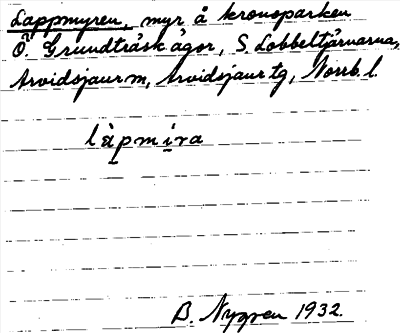 Lappmyren, myr å kronoparken
Ö. Grundträsk ägor, S. Lobbeltjärnarna,
Arvidsjaur m, Arvidsjaur tg, Norrb. l.
làpmira
B. Nygren 1932.